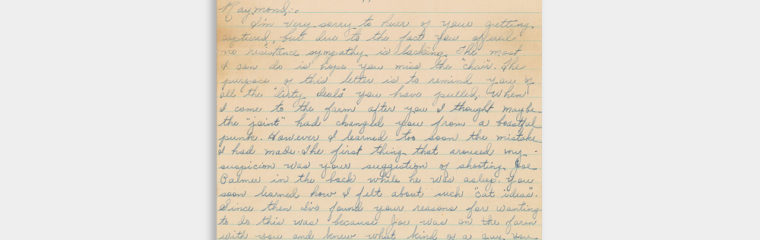 Raymond:-
I'm very sorry to hear of your getting
captured, but due to the fact you offered
no resistence sympathy is lacking. The most
I can do is hope you miss the "chair". The
purpose of this letter is to remind you of
all the "dirty deals" you have pulled. When
I come to the farm after you I thought maybe
the "joint" had changed you from a boastful
punk. However I learned too soon the mistake
I had made. The first thing that aroused my
suspicion was your suggestion of shooting Joe
Palmer in the back while he was asleep. You
soon learned how I felt about such "cat ideas".
Since then I've found your reasons for wanting
to do this was because Joe was on the farm
with you and knew what kind of a guy you